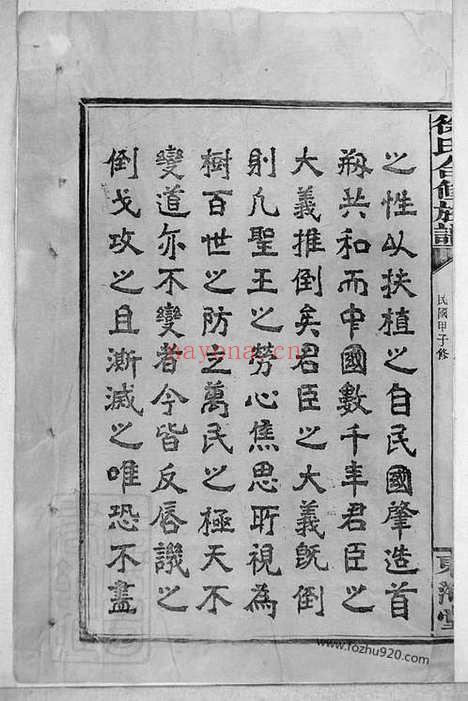 徐氏合修族譜
民國甲子修
東海堂
之性以扶植之自民國肇造首
剏共和而中國數千年君臣之
大義推倒矣君臣之大義既倒
則凡聖王之勞心焦思所視為
樹百世之防立萬民之極天不
變道亦不變者今皆反唇譏之
倒戈攻之且澌滅之唯恐不盡
nayona.cn
www.fozhu920.com